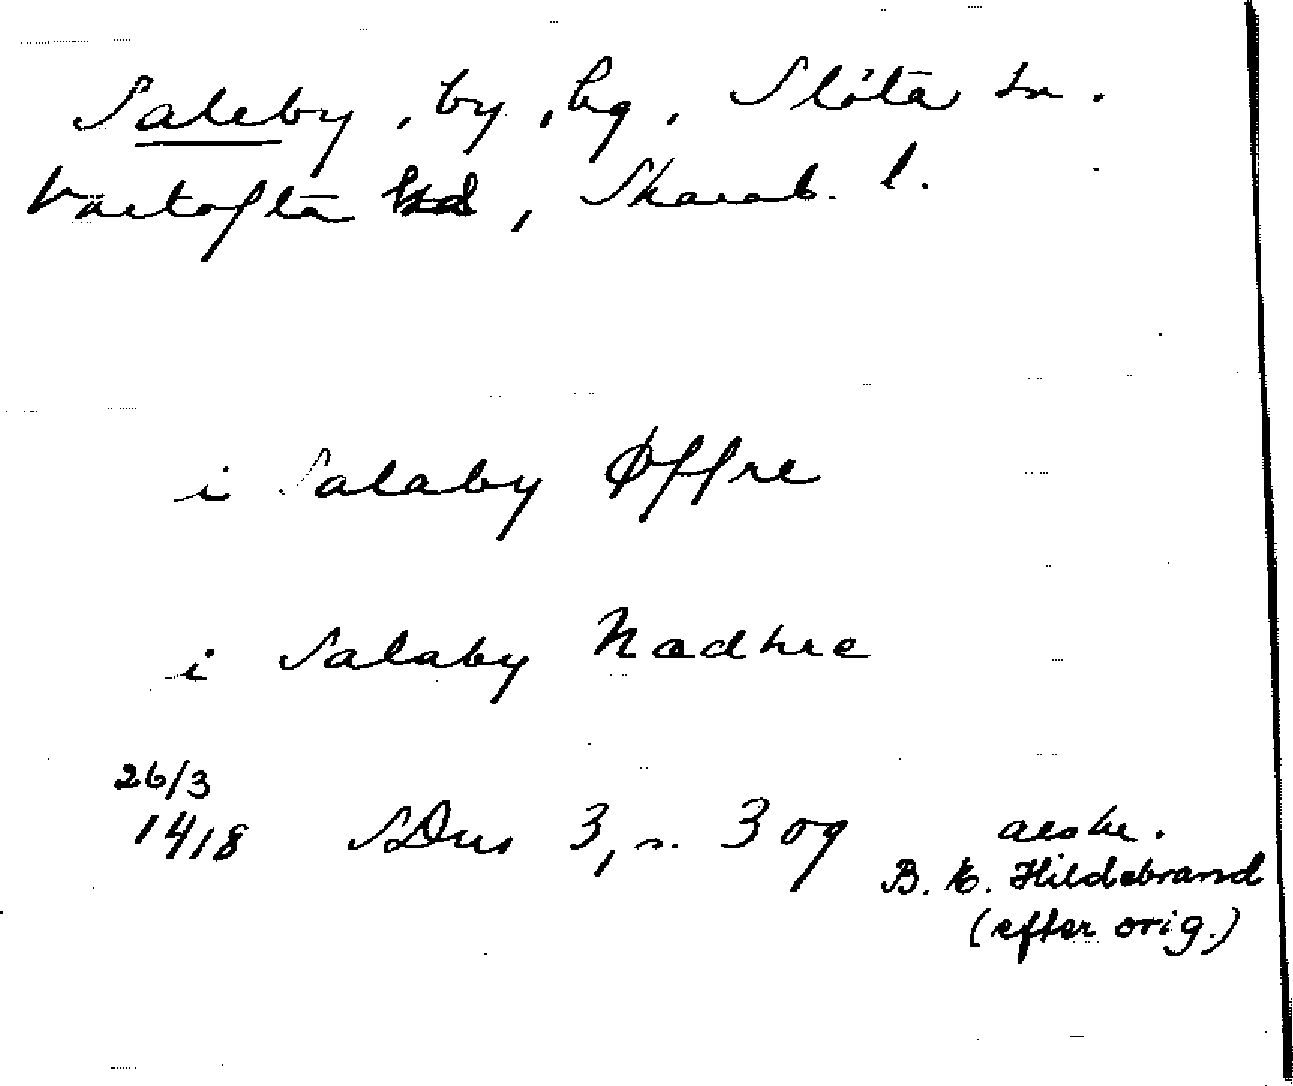 Saleby, by, bg, Slöta sn.
Vartofta hd, Skarab. l.
i Salaby Øffre
i Salaby Nædhre
26/3
1418 SDns 3, n. 3 og avskr.
B. E. Hildebrand
(efter orig.)